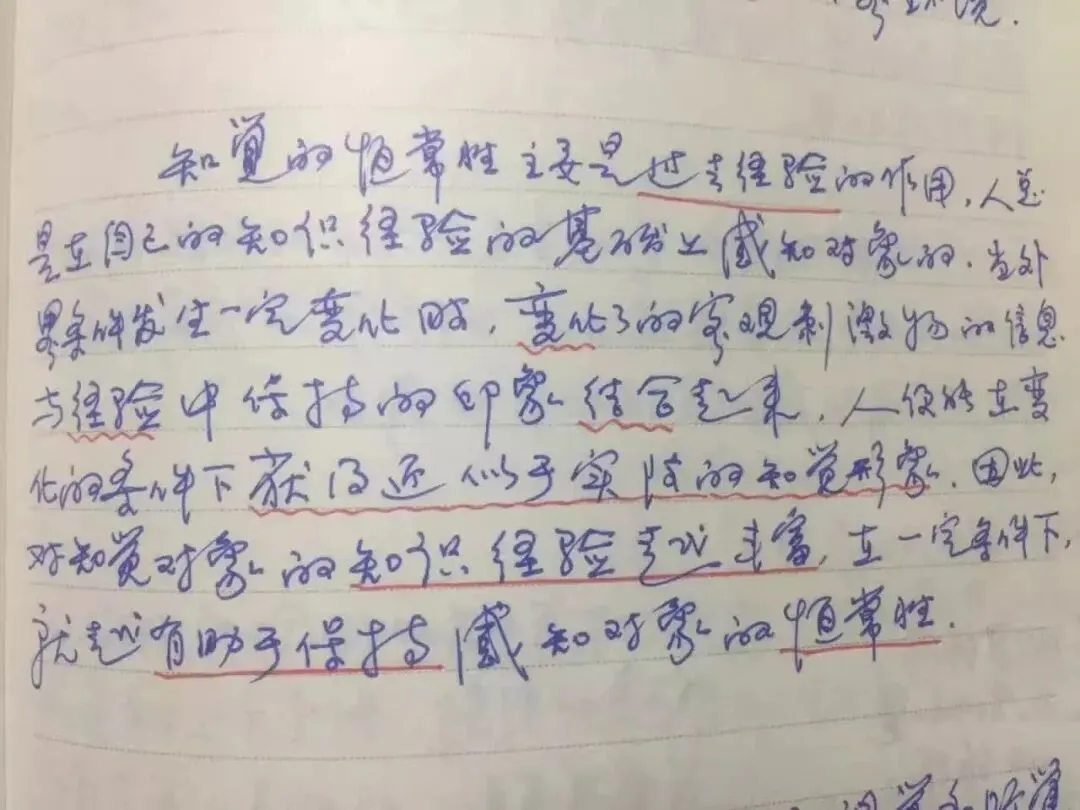 知觉的恒常性主要是过去经验的作用,人总
是在自己的知识经验的基础上感知对象的.当外
界条件发生一定变化时,变化了的客观刺激物的信息
与经验中保持的印象结合起来,人便能在变
化的条件下获得近似于实际的知觉形象.因此,
对知觉对象的知识经验越丰富,在一定条件下,
就越有助于保持感知对象的恒常性.